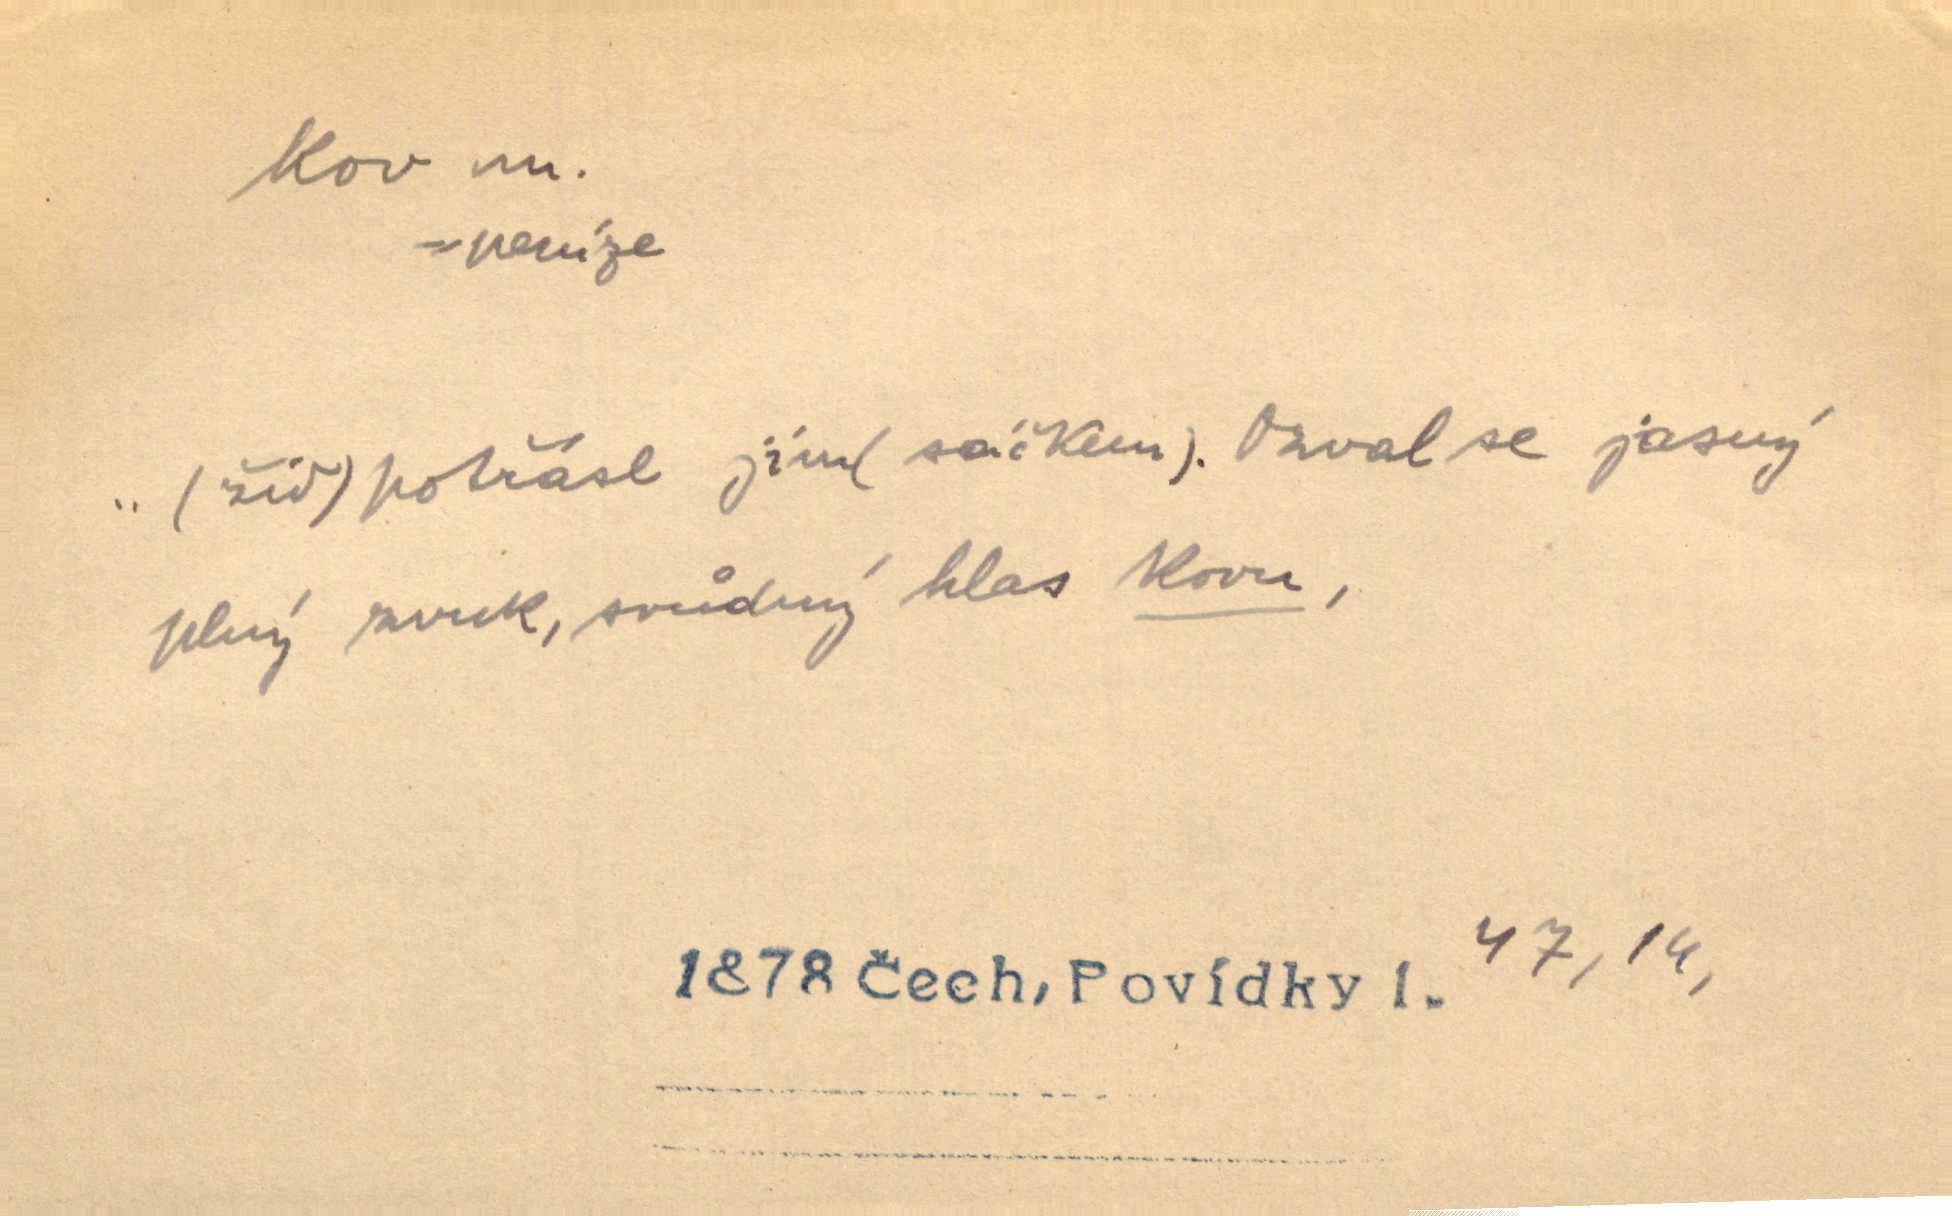 Kov m.
= peníze
„ (žid) potřásl jím (sáčkem). Ozval se jasný
plný zvuk, svůdný hlas kovu,
1878 Čech, Povídky I. 47, 14,